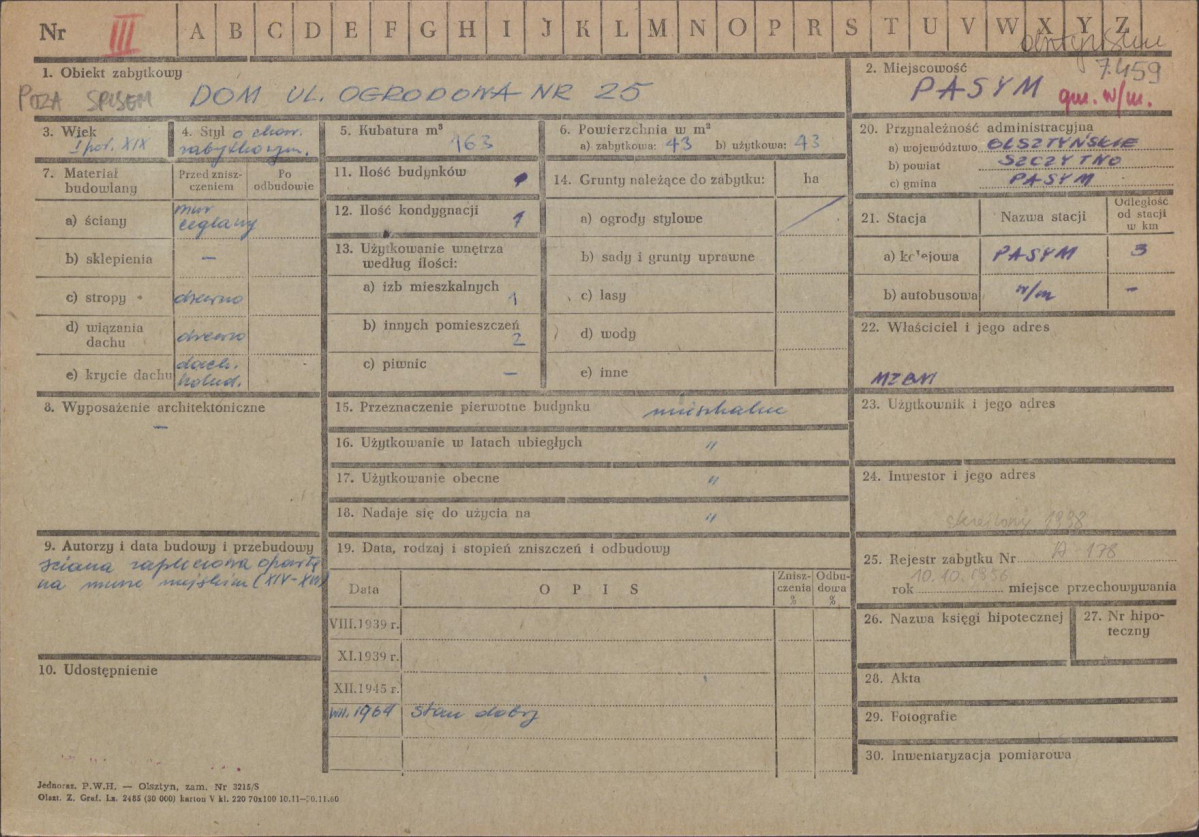 Nr III A B C D E F G H I J K L M N O P R S T U V W X Y Z
7.459
1. Obiekt zabytkowy
POZA SPISEM DOM UL. OGRODOWA NR 25
2. Miejscowość
PASYM
gm. w/m.
3. Wiek
I poł. XIX
4. Styl o char.
zabytkowym.
5. Kubatura m³
163
6. Powierzchnia w m²
a) zabytkowa: 43 b) użytkowa: 43
20. Przynależność administracyjna
a) województwo OLSZTYŃSKIE
b) powiat SZCZYTNO
c) gmina PASYM
7. Materiał budowlany
Przed zniszczeniem
Po odbudowie
a) ściany mur ceglany
b) sklepienia –
c) stropy drewno
d) wiązania dachu drewno
e) krycie dachu dach. holend.
11. Ilość budynków 1
12. Ilość kondygnacji 1
13. Użytkowanie wnętrza
według ilości:
a) izb mieszkalnych 1
b) innych pomieszczeń 2
c) piwnic –
14. Grunty należące do zabytku: ha
a) ogrody stylowe
b) sady i grunty uprawne
c) lasy
d) wody
e) inne
21. Stacja Nazwa stacji Odległość od stacji w km
a) kolejowa PASYM 3
b) autobusowa w/m –
22. Właściciel i jego adres
MZBM
8. Wyposażenie architektoniczne
–
15. Przeznaczenie pierwotne budynku mieszkalne
16. Użytkowanie w latach ubiegłych "
17. Użytkowanie obecne "
18. Nadaje się do użycia na "
23. Użytkownik i jego adres
24. Inwestor i jego adres
skreślony 1988
9. Autorzy i data budowy i przebudowy
ściana zapleciowa oparta
na murze miejskim (XIV-XVI)
19. Data, rodzaj i stopień zniszczeń i odbudowy
Data OPIS Zniszczenia % Odbudowa %
VIII.1939 r.
XI.1939 r.
XII.1945 r.
VIII.1964 stan dobry
25. Rejestr zabytku Nr A-178
rok 10.12.1956 miejsce przechowywania
26. Nazwa księgi hipotecznej
27. Nr hipoteczny
10. Udostępnienie
28. Akta
29. Fotografie
30. Inwentaryzacja pomiarowa
Jednoraz. P.W.H. — Olsztyn, zam. Nr 3215/S